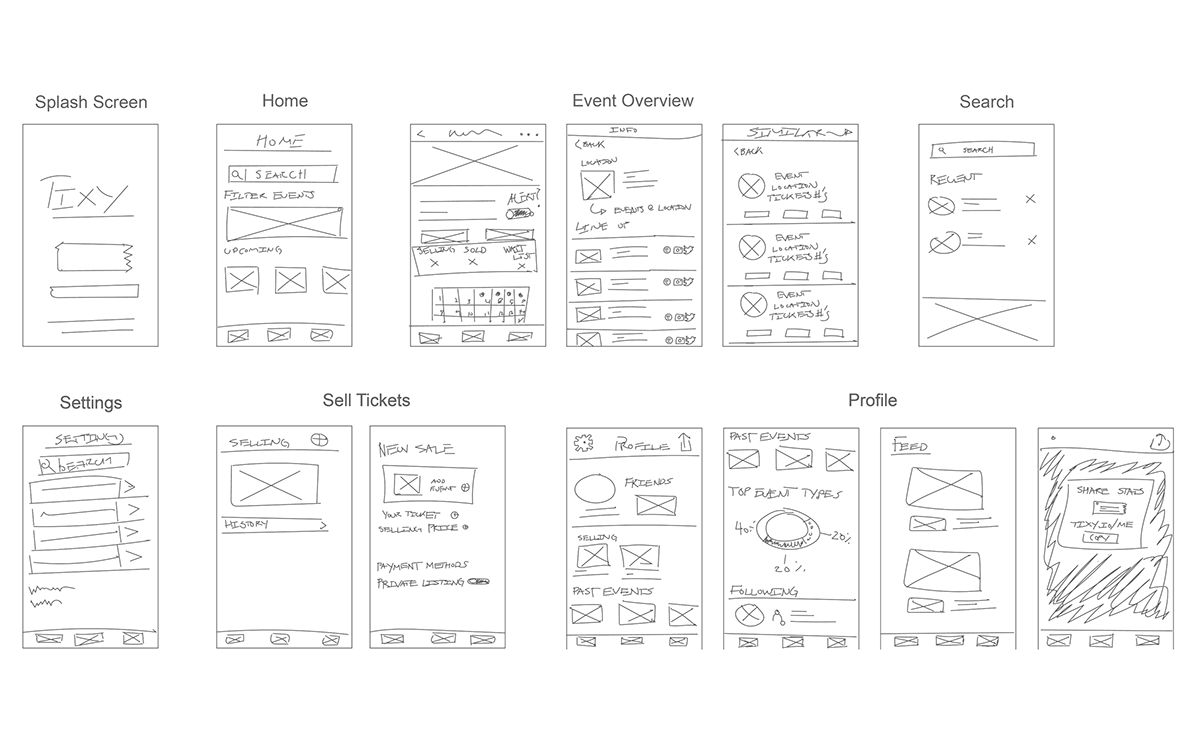 Splash Screen
Home
Event Overview
Search
TIXY
HOME
SEARCH
FILTER EVENTS
UPCOMING
ALERT?
SELLING SOLD WAIT
LIST
1 2 3 4
INFO
<BACK
LOCATION
EVENTS @ LOCATION
LINE UP
SIMILAR
<BACK
EVENT
LOCATION
TICKETS #'s
EVENT
LOCATION
TICKETS #'s
EVENT
LOCATION
TICKETS #'s
SEARCH
RECENT
Settings
Sell Tickets
Profile
SETTINGS
SEARCH
SELLING
HISTORY
NEW SALE
ADD
EVENT
YOUR TICKET
SELLING PRICE
PAYMENT METHODS
PRIVATE LISTING
PROFILE
FRIENDS
SELLING
PAST EVENTS
PAST EVENTS
TOP EVENT TYPES
40%
20%
20%
FOLLOWING
FEED
SHARE STATS
TIXY.IO/ME
COPY